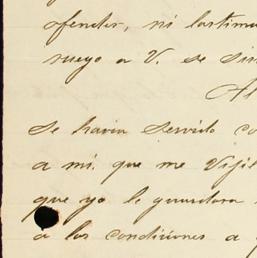 ofender, ni lastima
ruego a V. se sir
se havia servido co
a mi. que me Vigi
que yo le guardara
a las condiciones a